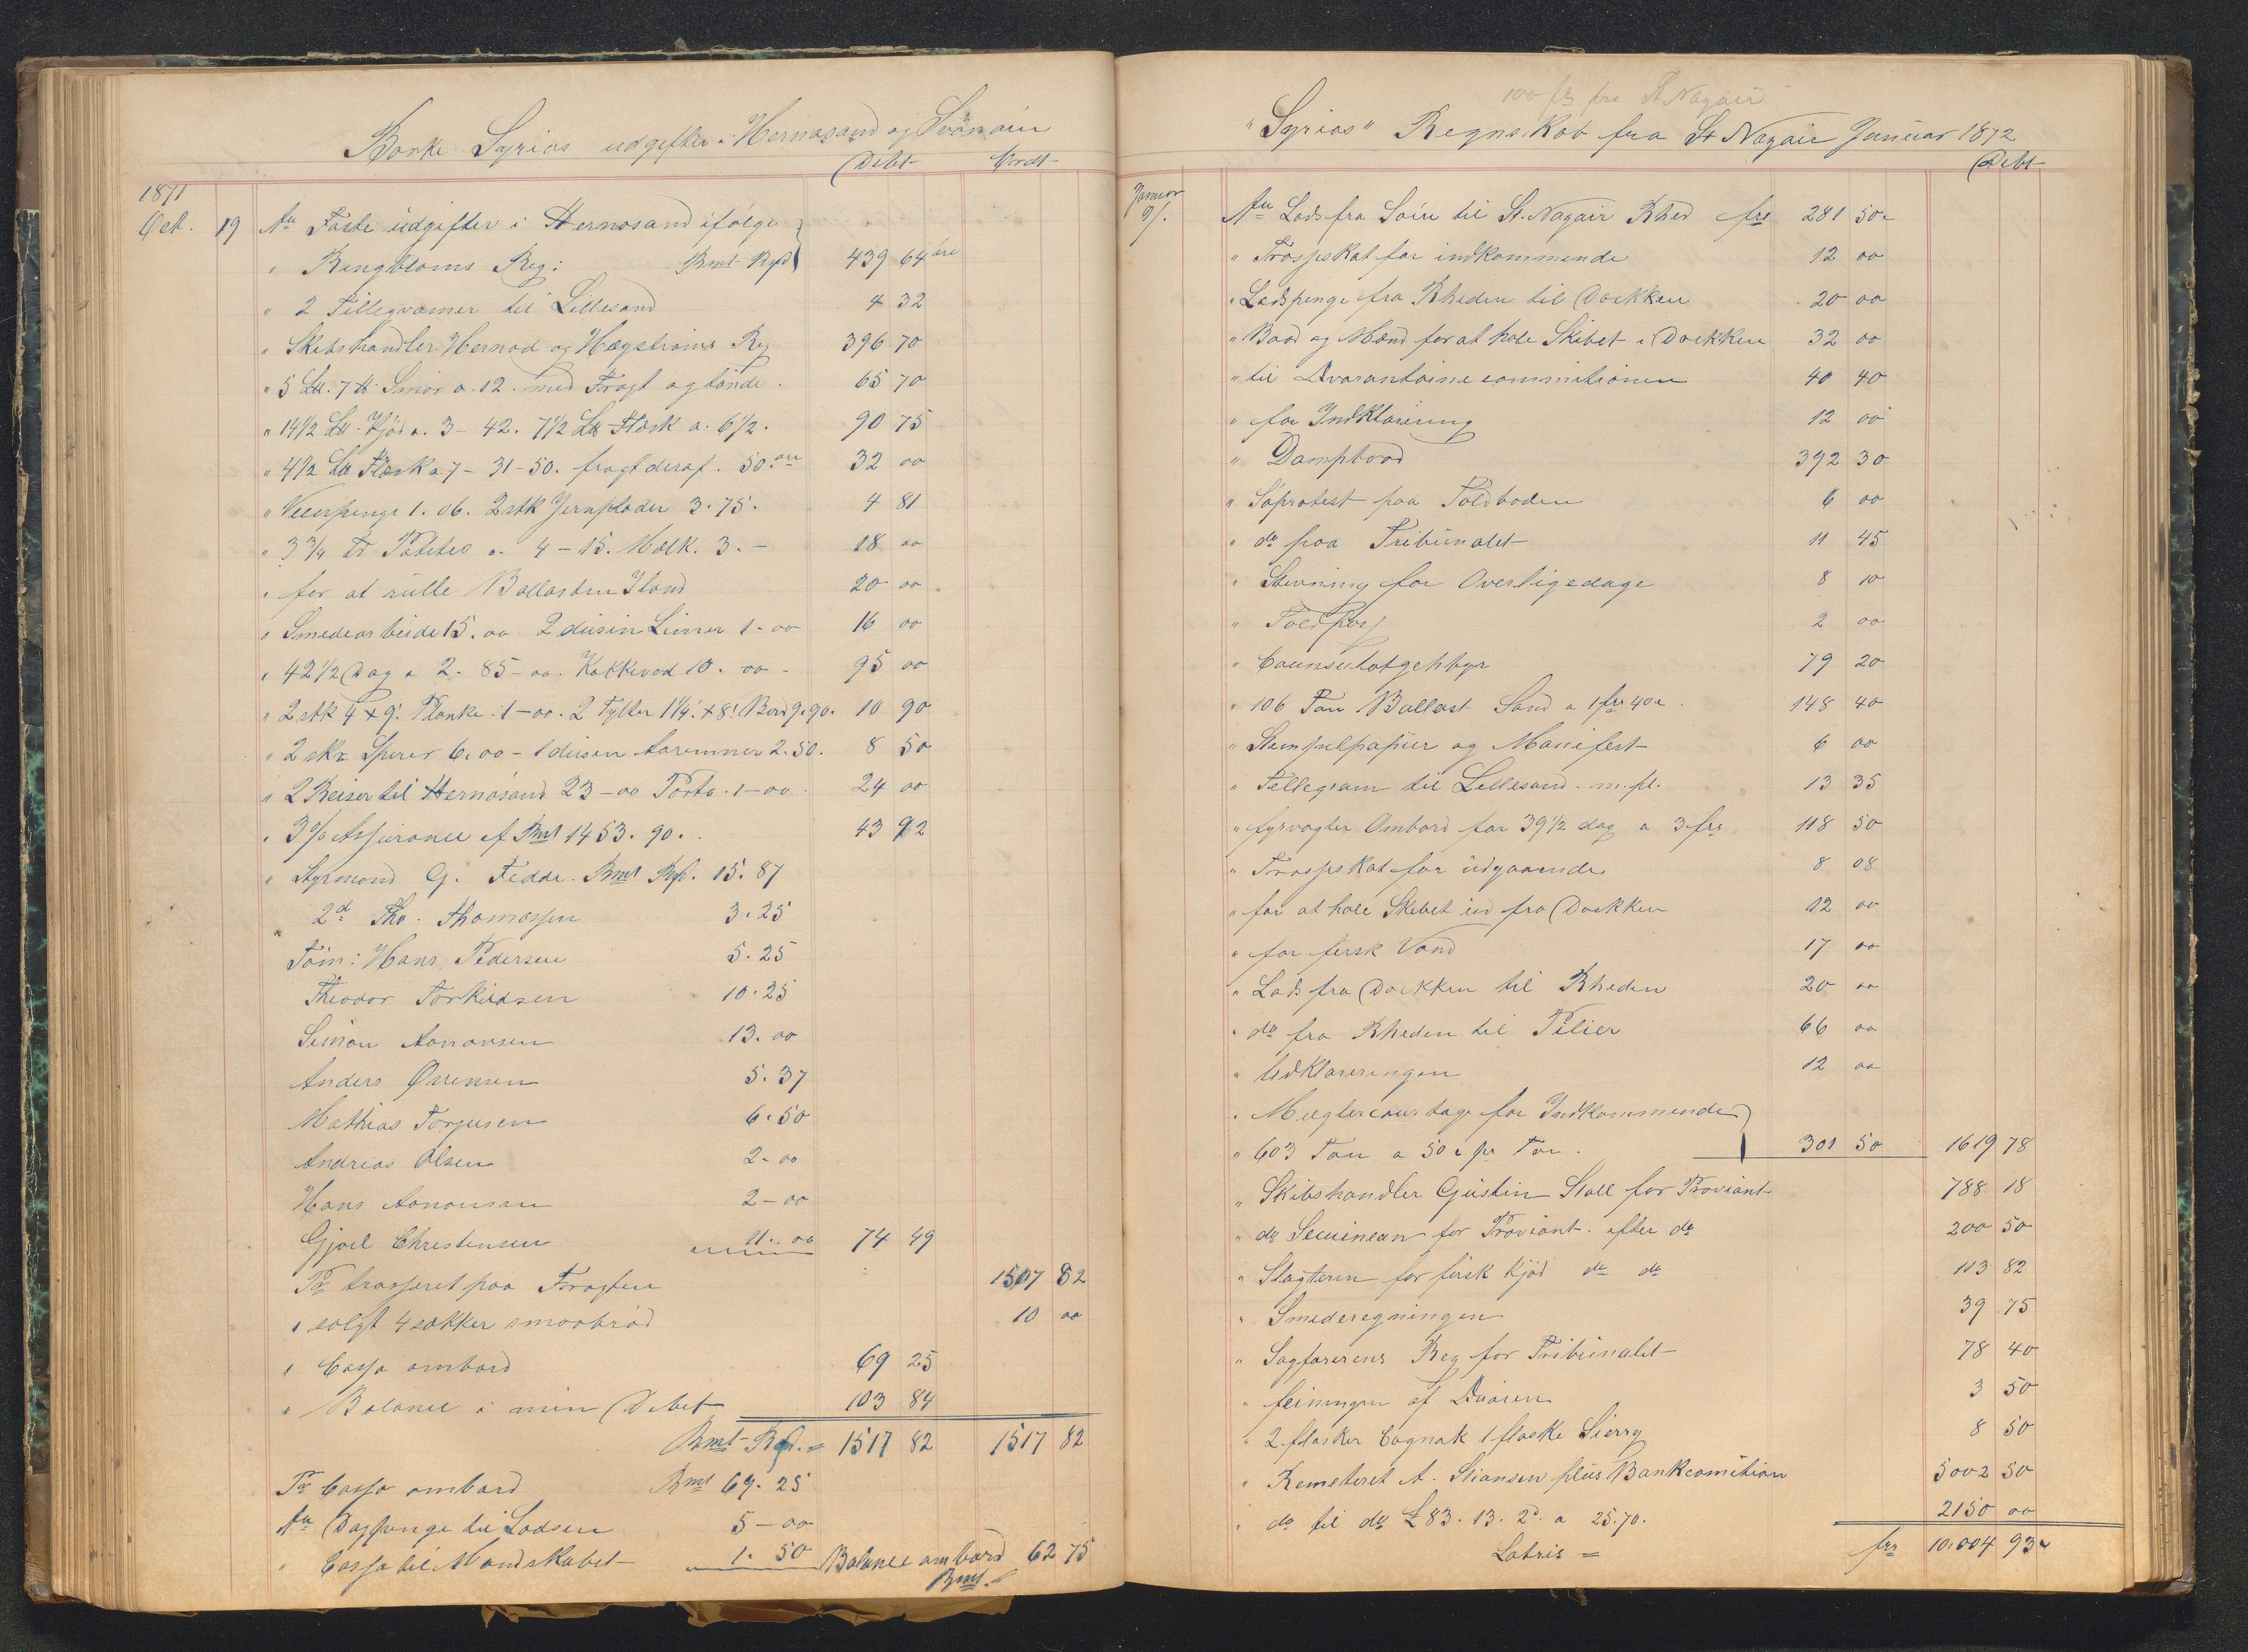 Barke Syrias udgifter i Hernøsand og Svanøen
Debt Credt
1871
Oct. 19 An Faste udgifter i Hernøsand ifølge
" Ringbloms Reg: Rmt Rgd 439 64 øre
" 2 Tillegramer til Lillesand 4 32
" Skibshandler Hernod og Høgstrøms Reg 396 70
" 5 L℔. 7 ℔. Smør a. 12. med Fragt og tønde. 65 70
" 14 1/2 L℔. Kjød a. 3 - 42. 7 1/2 L℔ Flesk a. 6 1/2. 90 75
" 4 1/2 L℔ Flesk a 7 - 31 - 50. fragt deraf. 50 øre 32 00
" Veierpenge 1. 06. 2 stk Jernplader 3. 75. 4 81
" 3 3/4 Tr Potetes a. 4 - 15. Melk. 3. - 18 00
" for at rulle Ballasten Iland 20 00
" Smedearbeide 15. 00. 2 dusin Limer 1 - 00 16 00
" 42 1/2 Dag a 2. 85 - 00. Kokkeved 10. 00 - 95 00
" 2 stk 4 x 9". Planke. 1 - 00. 2 Tylter 1 1/4" x 8" Bord 9. 90. 10 90
" 2 stk Spirer 6. 00 - 1 dusin Aaremner 2. 50. 8 50
" 2 Reiser til Hernøsand 23 - 00 Porto. 1 - 00. 24 00
" 3 % Assurance af Rmt 1453. 90. 43 92
" Styrmand G. Fedde. Rmt Rgd. 15. 87
2d Tho. Thomassen 3. 25
Tøm: Hans Pedersen 5. 25
Theodor Torkildsen 10. 25
Simon Aanonsen 13. 00
Anders Ørrensen 5. 37
Mathias Torjusen 6. 50
Andreas Olsen 2 - 00
Hans Aanonsen 2 - 00
Gjoel Christensen 11. 00 74 49
Pr trasseret paa Fragten 1507 82
" solgt 4 sækker smaabrød 10 00
" Cassa ombord 69 25
" Balance i min Debet 103 84
Rmt Rgd. = 1517 82 1517 82
Pr Cassa ombord Rmt 69. 25
An Dagpenge til Lodsen 5 - 00
" Cassa til Mandskabet 1. 50 Balance ombord 62 75
Rmt.
100 frs fra St Nagair
"Syrias" Regnskab fra St Nagair Januar 1872
Debt
Januar
9/1. An Lods fra Soin til St. Nagair Rhed frs 281 50 c
" Traspskat for indkommende 12 00
" Ladspenge fra Rheden til Dockken 20 00
" Baad og Mand for at hale Skibet i Dockken 32 00
" til Qvarantaine commitionen 40 40
" for Indklarering 12 00
" Dampbaad 392 30
" Søprotest paa Toldboden 6 00
" do paa Tribunalet 11 45
" Stevning for Overligedage 8 10
" Toldpas 2 00
" Counsulatgebhyr 79 20
" 106 Ton Ballast Sand a 1 frs 40 c. 148 40
" Stempelpapier og Manifest 6 00
" Tellegram til Lillesand. m. fl. 13 35
" fyrvagter Ombord for 39 1/2 dag a 3 frs 118 50
" Traspskat for udgaaende 8 08
" for at hale Skibet ud fra Dockken 12 00
" for fersk Vand 17 00
" Lods fra Dockken til Rheden 20 00
" do fra Rheden til Pilier 66 00
" Udklareringen 12 00
" Meglercourtage for Indkommende
" 603 Ton a 50 c pr Ton. 301 50 1619 78
" Skibshandler Gustin Stall for Proviant 788 18
" do Secuinean for Proviant. efter do 200 50
" Slagteren for fersk Kjød do do 113 82
" Smederegningen 39 75
" Sagførerens Reg for Tribunalet 78 40
" feiningen af Quaien 3 50
" 2 flasker Cognak 1 flaske Sierry 8 50
" Remeteret A. Stiansen plus Bankcomition 5002 50
" do til do £ 83. 13. 2d. a 25. 70. 2150 00
Latris = frs 10.004 93 c